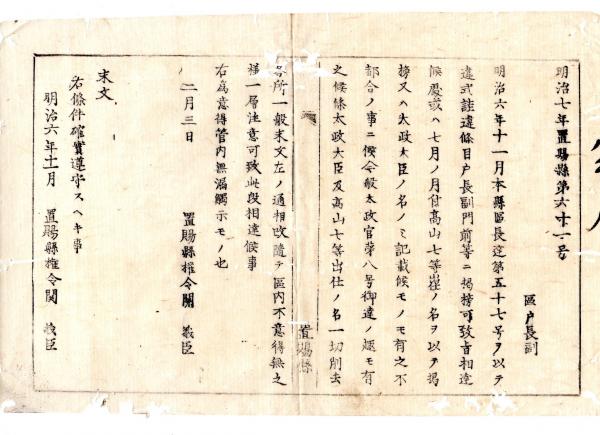 明治七年置賜縣第六十一号
區戸長副
明治六年十一月本縣區長達第五十七号ヲ以テ
違式詿違條目戸長副門前等ニ揭榜可致旨相達
候處或ハ七月ノ月付高山七等出仕ノ名ヲ以テ揭
榜又ハ太政大臣ノ名ノミ記載候モノモ有之不
都合ノ事ニ候今般太政官第八号御達ノ趣モ有
之候條太政大臣及高山七等出仕ノ名一切削去
各所一般末文左ノ通相改隨テ區内不意得無之
様一層注意可致此段相達候事
右為意得管内無漏觸示モノ也
二月三日
置賜縣權令關 義臣
末文
右條件確實遵守スヘキ事
明治六年十一月 置賜縣權令關 義臣
置賜縣